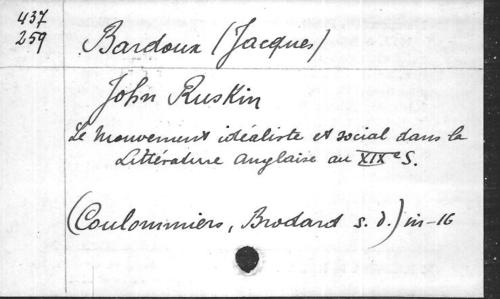 437
259
Bardoux (Jacques)
John Ruskin
Le Mouvement idéaliste et social dans la
Littérature anglaise au XIXe S.
(Coulommiers, Brodard s. d.) in-16